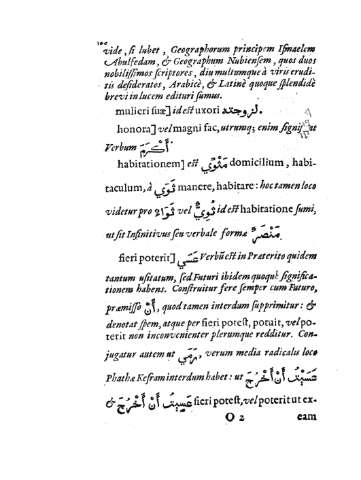 vide, si lubet, Geographorum principem Ismaelem
Abulfedam, & Geographum Nubiensem, quos duos
nobilissimos scriptores, diu multumque à viris erudi-
tis desideratos, Arabicè, & Latinè quoque splendidè
brevi in lucem edituri sumus.
mulieri suæ] id est uxori لزوجته
honora] vel magni fac, utrumq; enim signif ut
Verbum أَكْرَمَ
habitationem] est مَثْوًي domicilium, habi-
taculum, à ثَوَي manere, habitare: hoc tamen loco
videtur pro ثَوًا vel ثُوِيٌّ id est habitatione sumi,
ut sit Infinitivus seu verbale formæ مَنْصَرٌ
fieri poterit] عَسَي Verbũ est in Præterito quidem
tantum usitatum, sed Futuri ibidem quoquè significa-
tionem habens. Construitur fere semper cum Futuro,
præmisso أَنْ, quod tamen interdum supprimitur: &
denotat spem, atque per fieri potest, potuit, vel po-
terit non inconvenienter plerumque redditur. Con-
jugatur autem ut رَمَي, verum media radicalis loco
Phatha Kesram interdum habet: ut عَسَيْتُ أَنْ أَخْرُجَ
& عَسِيتُ أَنْ أَخْرُجَ fieri potest, vel poterit ut ex-
O 2 eam